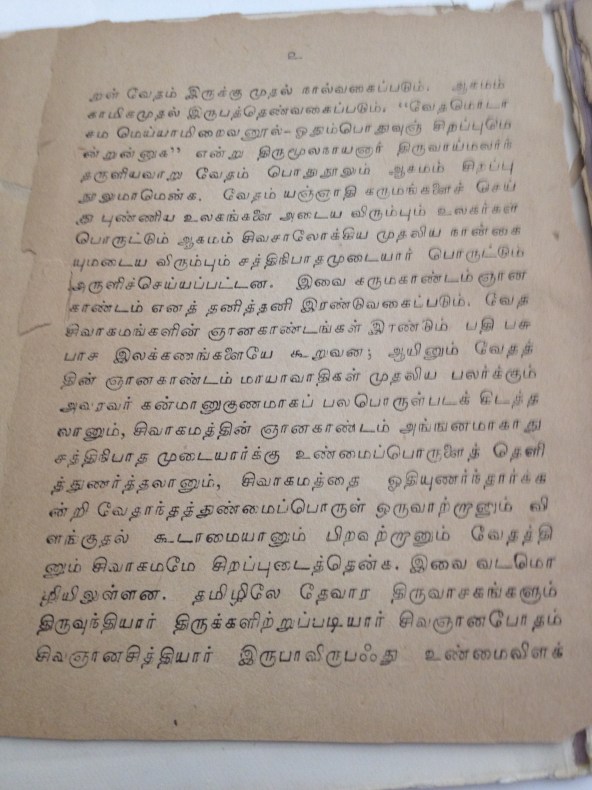 உ
றுள் வேதம் இருக்கு முதல் நால்வகைப்படும். ஆகமம்
காமிகமுதல் இருபத்தெண்வகைப்படும். “வேதமொடா
கம மெய்யாமிறைவனூல்-ஓதும்பொதுவுஞ் சிறப்புமெ
ன்றுன்னுக” என்று திருமூலநாயனார் திருவாய்மலர்ந்
தருளியவாறு வேதம் பொதுநூலும் ஆகமம் சிறப்பு
நூலுமாமென்க. வேதம் யஞ்ஞாதி கருமங்களைச் செய்
து புண்ணிய உலகங்களை அடைய விரும்பும் உலகர்கள்
பொருட்டும் ஆகமம் சிவசாலோக்கிய முதலிய நான்கை
யுமடைய விரும்பும் சத்திநிபாதமுடையார் பொருட்டும்
அருளிச்செய்யப்பட்டன. இவை கருமகாண்டம் ஞான
காண்டம் எனத் தனித்தனி இரண்டுவகைப்படும். வேத
சிவாகமங்களின் ஞானகாண்டங்கள் இரண்டும் பதி பசு
பாச இலக்கணங்களையே கூறுவன; ஆயினும் வேதத்
தின் ஞானகாண்டம் மாயாவாதிகள் முதலிய பலர்க்கும்
அவரவர் கன்மானுகுணமாகப் பலபொருள்படக் கிடந்த
லானும், சிவாகமத்தின் ஞானகாண்டம் அங்ஙனமாகாது
சத்திநிபாத முடையார்க்கு உண்மைப்பொருளைத் தெளி
த்துணர்த்தலானும், சிவாகமத்தை ஓதியுணர்ந்தார்க்க
ன்றி வேதாந்தத்துண்மைப்பொருள் ஒருவாற்றானும் வி
ளங்குதல் கூடாமையானும் பிறவற்றானும் வேதத்தி
னும் சிவாகமமே சிறப்புடைத்தென்க. இவை வடமொ
ழியிலுள்ளன. தமிழிலே தேவார திருவாசகங்களும்
திருவுந்தியார் திருக்களிற்றுப்படியார் சிவஞானபோதம்
சிவஞானசித்தியார் இருபாவிருபஃது உண்மைவிளக்